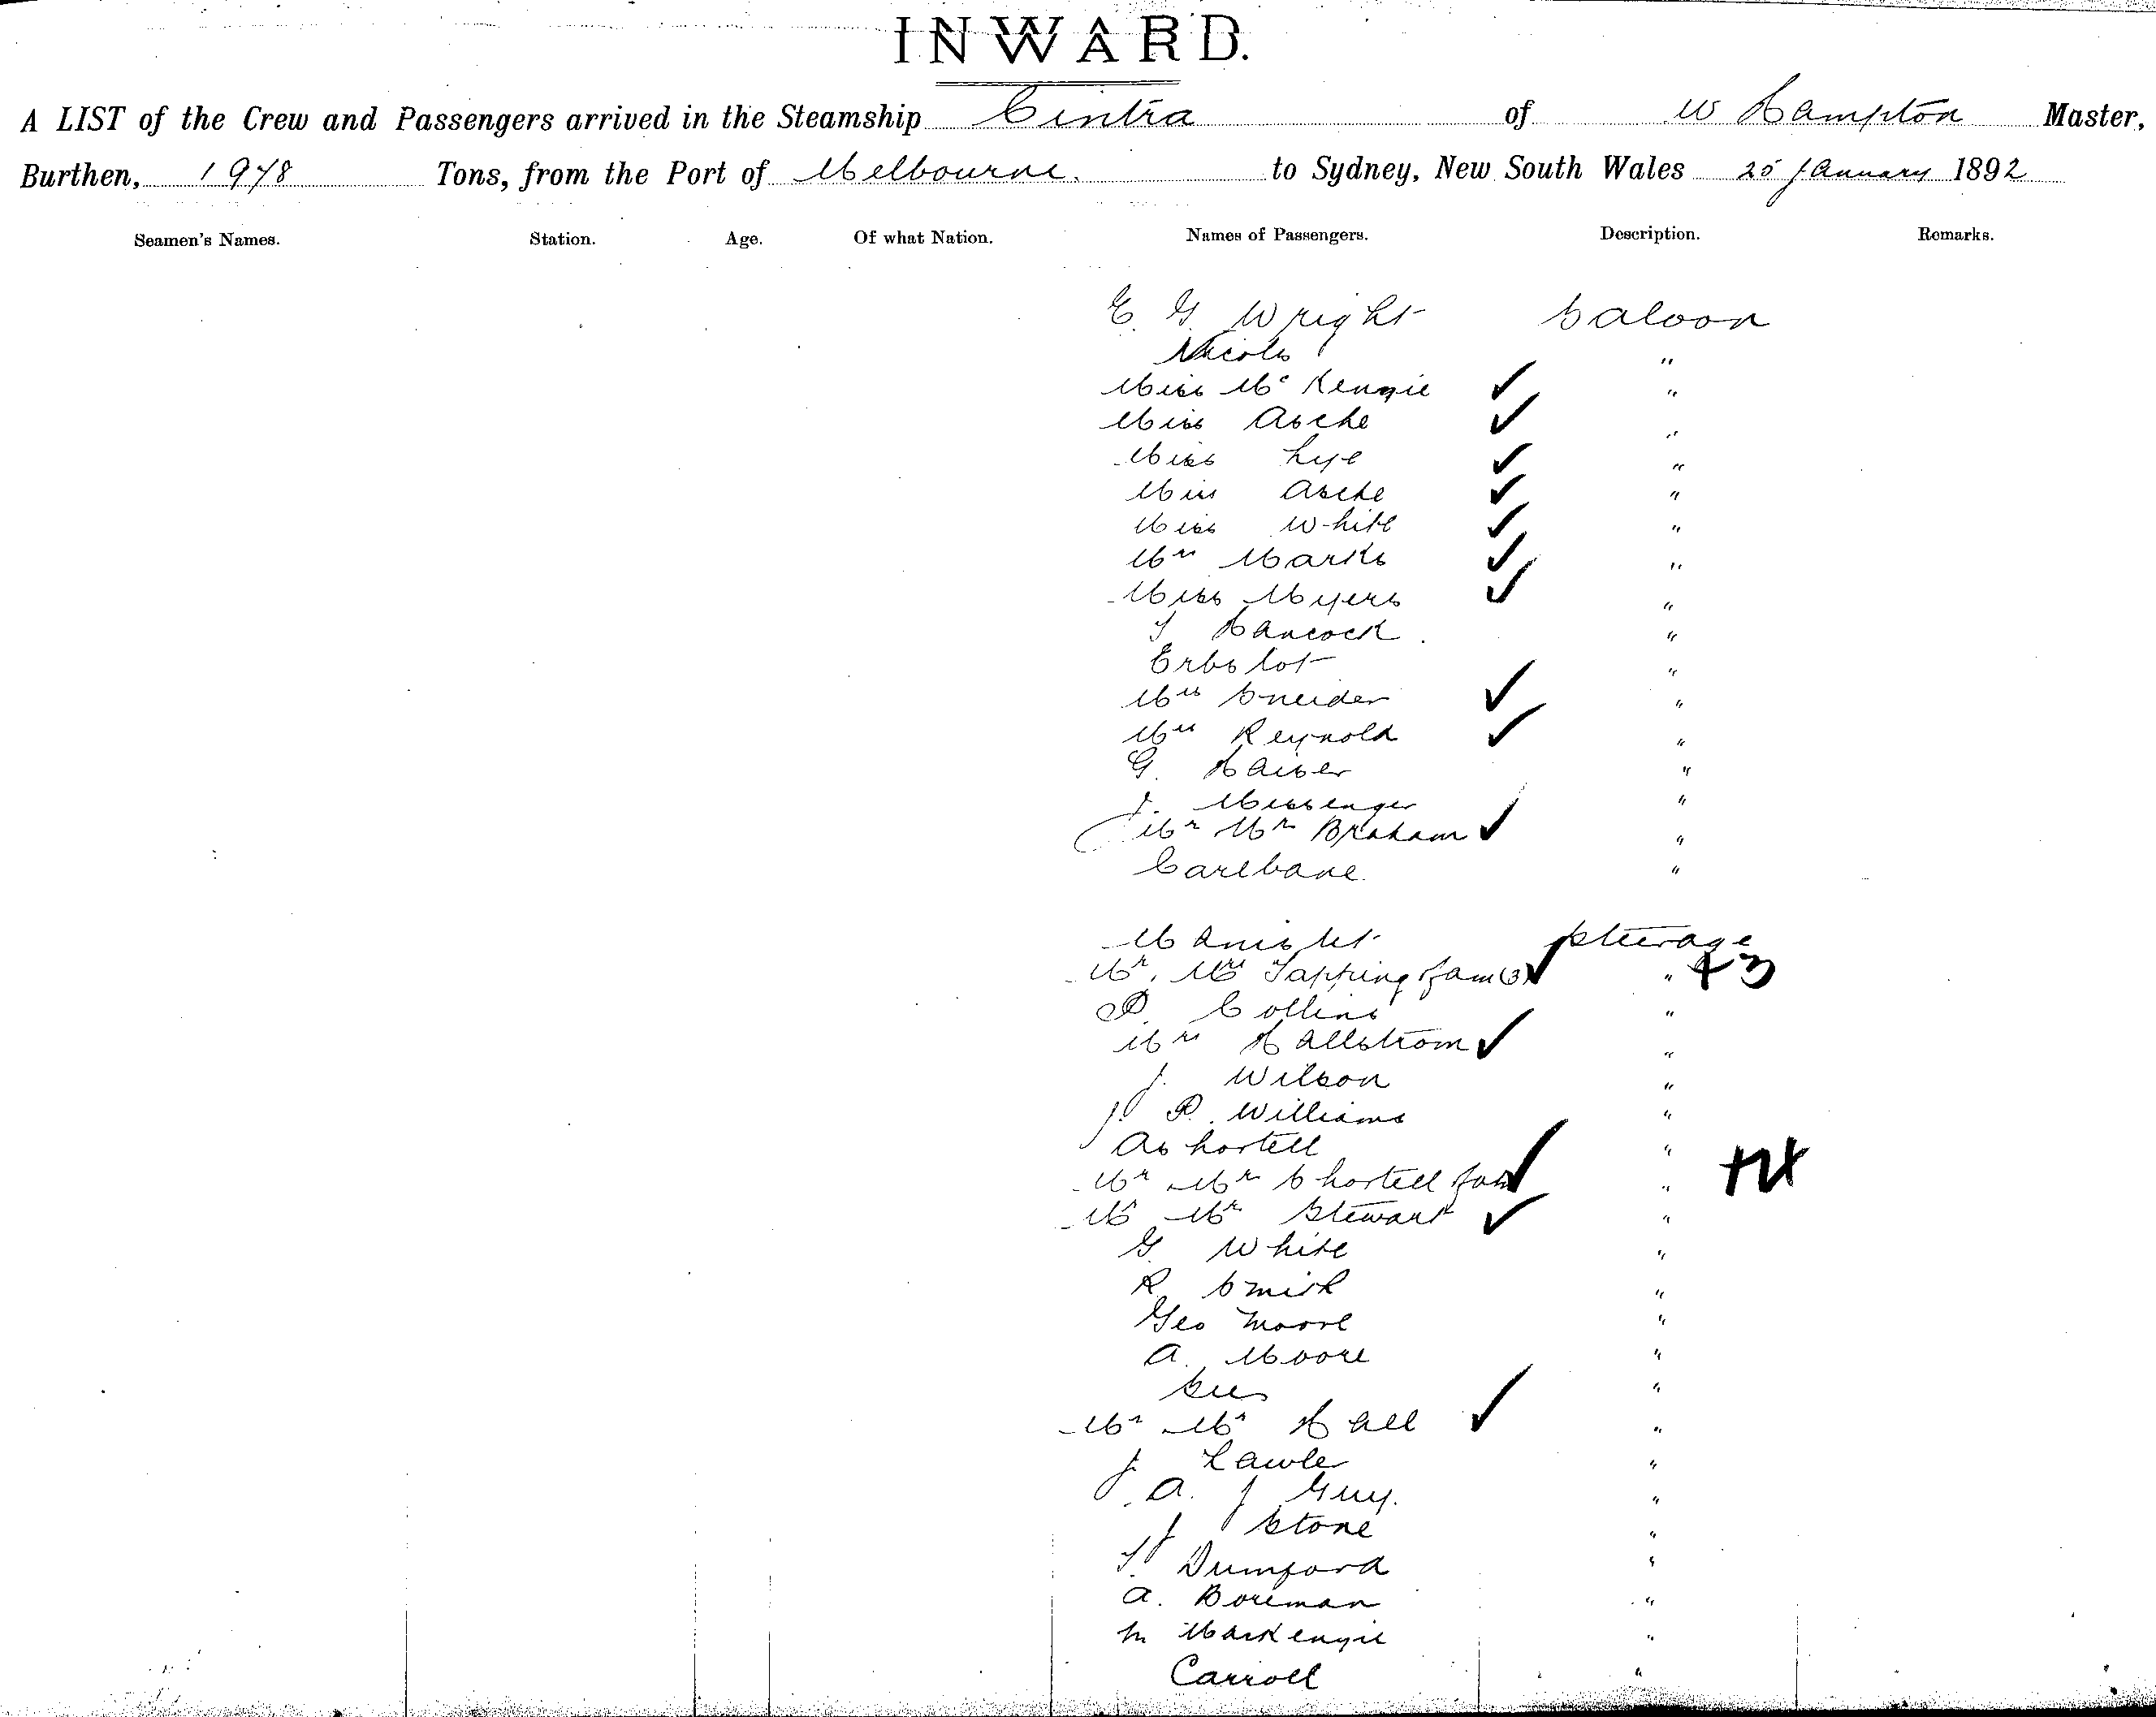 INWARD.
A LIST of the Crew and Passengers arrived in the Steamship Cintra of W Hampton Master,
Burthen, 1978 Tons, from the Port of Melbourne. to Sydney, New South Wales 25 January 1892
Seamen's Names. Station. Age. Of what Nation. Names of Passengers. Description. Remarks.
E. G. Wright Saloon
Nicols "
Miss McKenzie ✓ "
Miss Asche ✓ "
Miss Lye ✓ "
Miss Asche ✓ "
Miss White ✓ "
Mrs Marks ✓ "
Miss Myers ✓ "
Hancock "
Erbslot "
Mrs Sneider ✓ "
Mrs Reynold ✓ "
G. Haiser "
J. Messenger "
Mr Mrs Braham ✓ "
Carlbane. "
Steerage
Mr. Mrs Tapping fam (3) ✓ " + 3
P. Collins "
Mrs Hallstrom ✓ "
J. Wilson "
J. P. Williams "
A Shortell "
Mr Mrs Shortell fam ✓ "
Mr Mrs Stewart ✓ "
G. White "
R. Smith "
Geo Moore "
A. Moore "
"
Mr Mrs Hall ✓ "
J. Lawler "
A. J Guy. "
J Stone "
Dumford "
A. Boreman "
M MacKenzie "
Carroll "